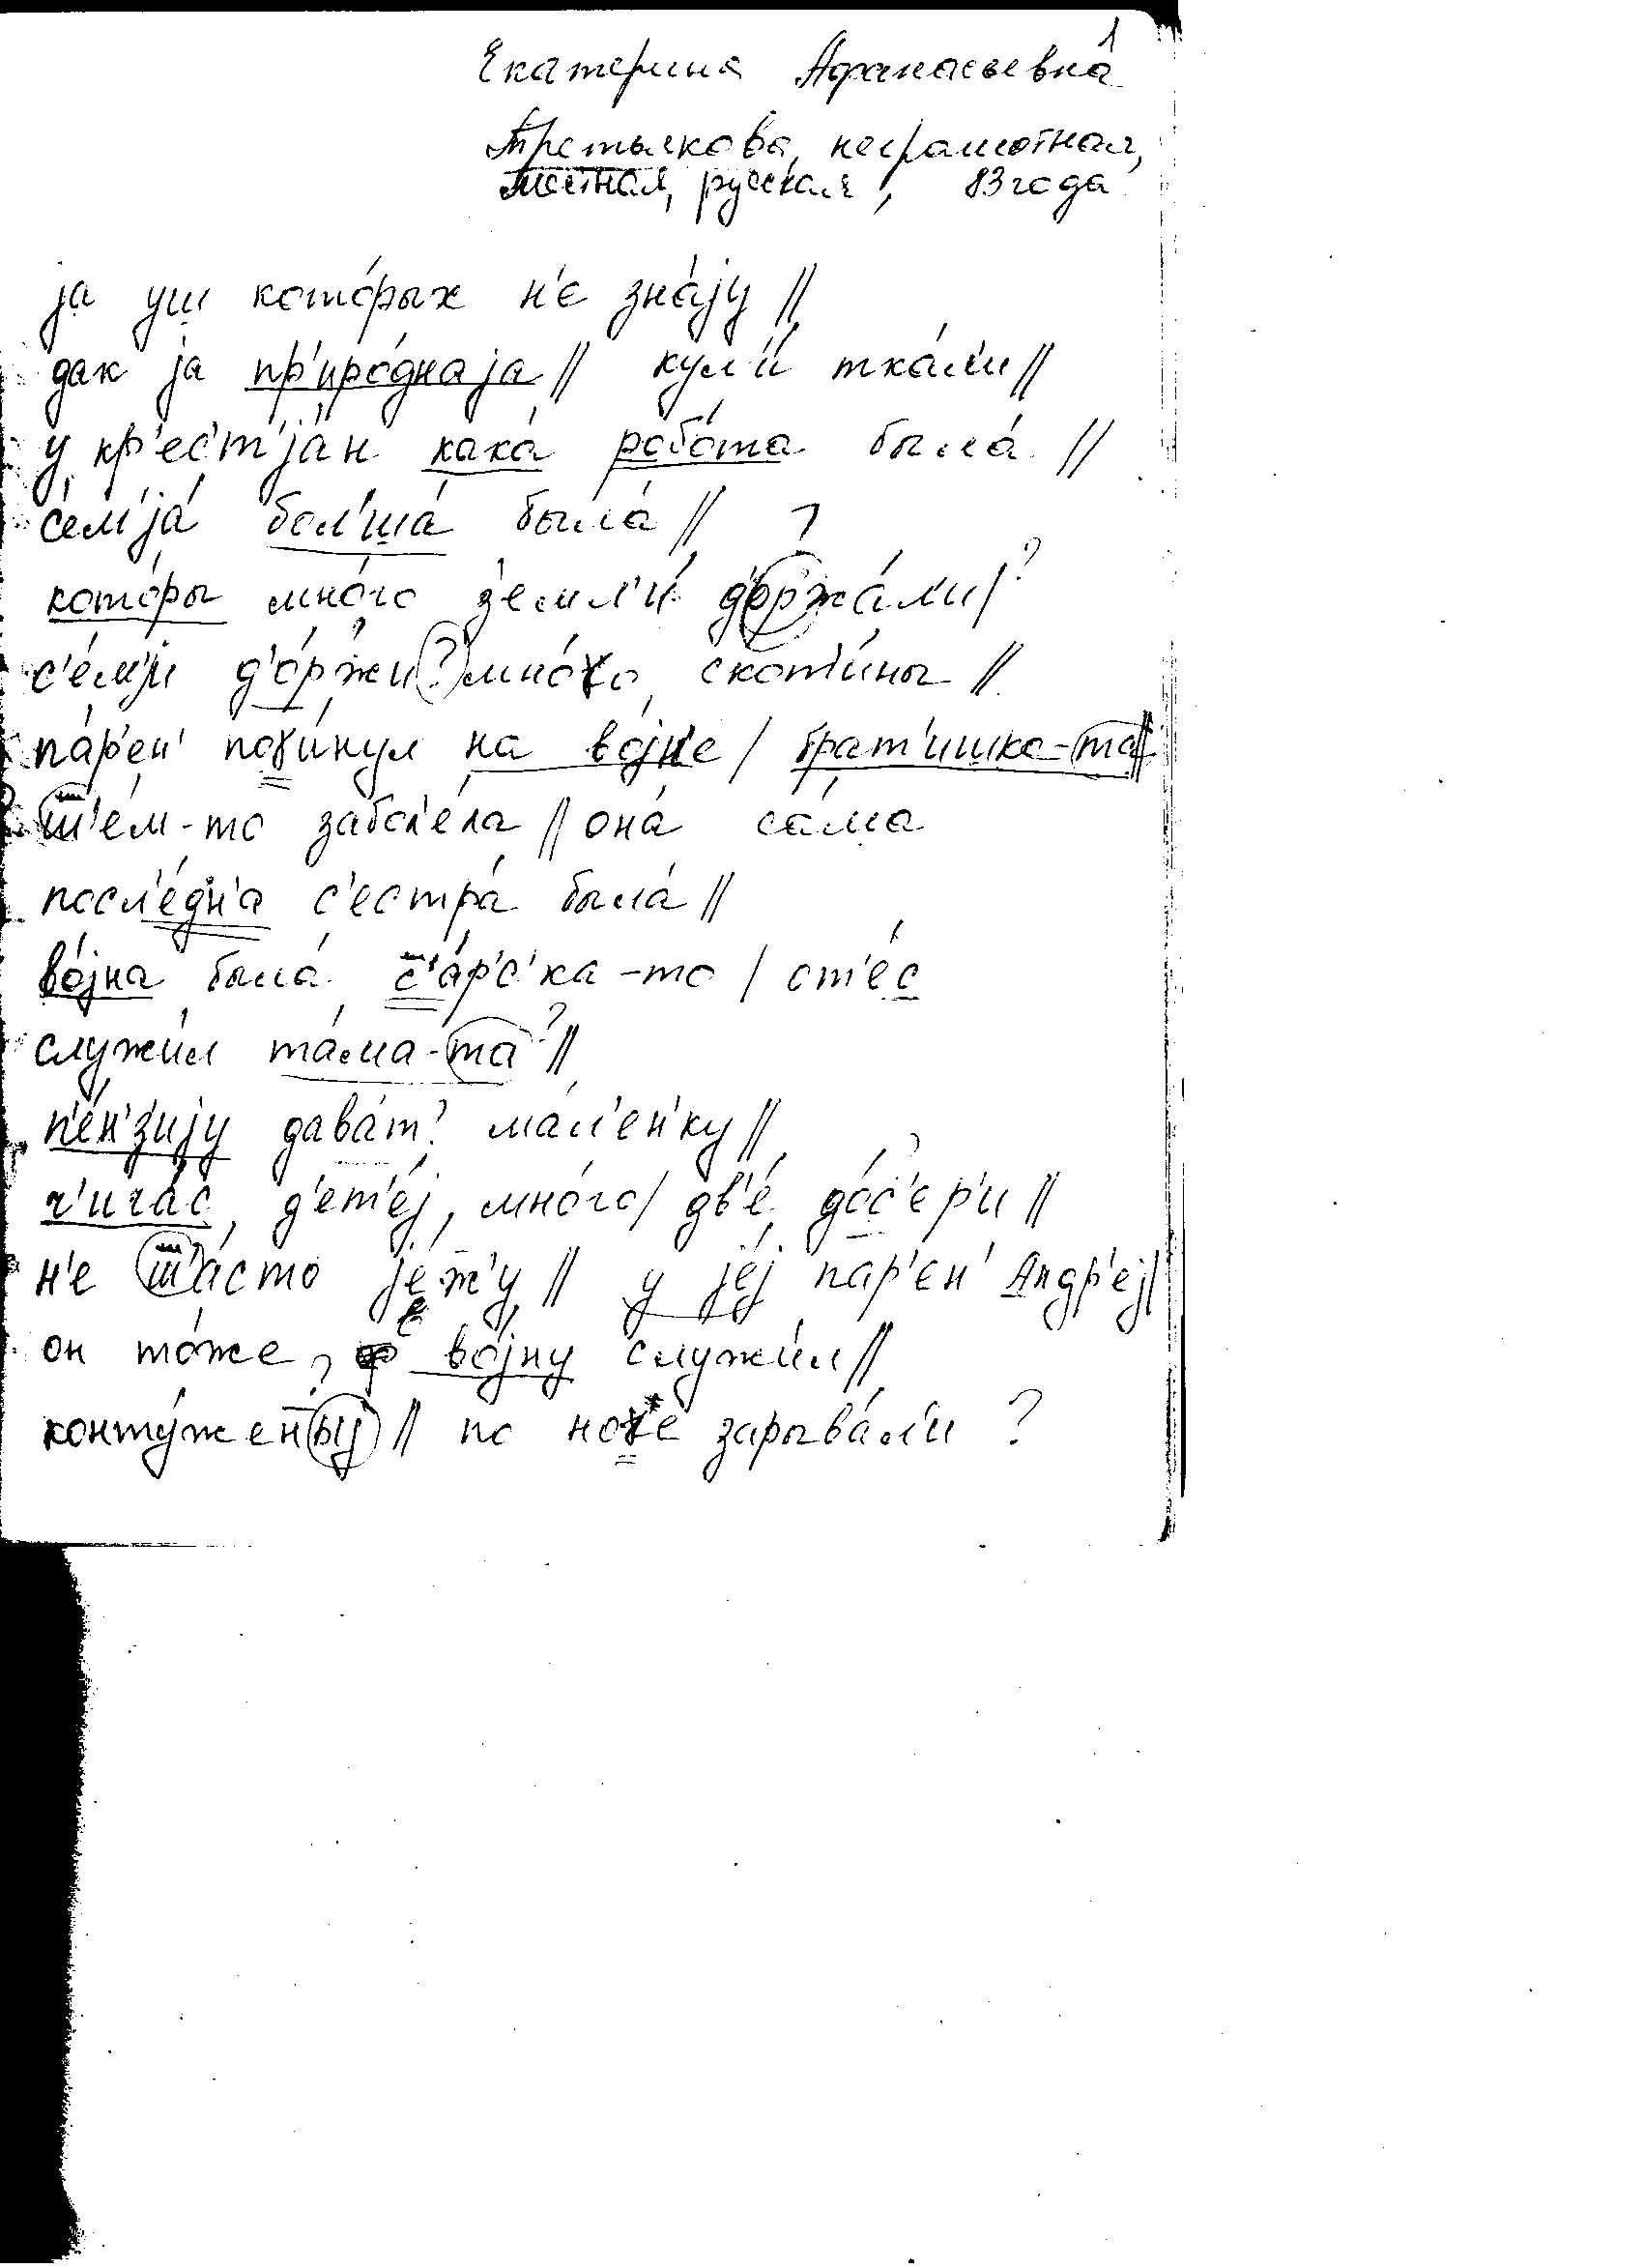 1
Екатерина Афанасьевна
Третьякова, неграмотная,
местная, русская, 83 года
ја уш кото́рых н'е зна́ју //
дак ја пр'иро́днаја // кул'и́ тка́л'и //
у кр'ес'т'ја́н кака́ рабо́та была́ //
с'ем'ја́ бол'ша́ была́ //
кото́ры мно́го з'емл'и́ д'оржа́ли / ?
с'е́м'ји д'о́ржи (?) мно́γо скот'и́ны //
па́р'ен' поγи́нул на во́јн'е / брат'ишко-та //
ш'ем-то забол'е́ла // она́ са́ма
посл'е́дн'а с'естра́ была́ //
во́јна была́ с'а́р'с'ка-то / от'е́с
служи́л та́ма-та ? //
п'е́н'з'ију дава́т ? ма́л'ен'ку //
ч'ича́с д'ет'е́ј мно́го / дв'е́ до́с'ер'и //
н'е ш'а́сто је́ж'у // у је́ј па́р'ен' Андр'еј /
он то́же ? в во́јну служи́л //
конту́жен̄ыј // по ноγ'е́ зарыва́л'и ?